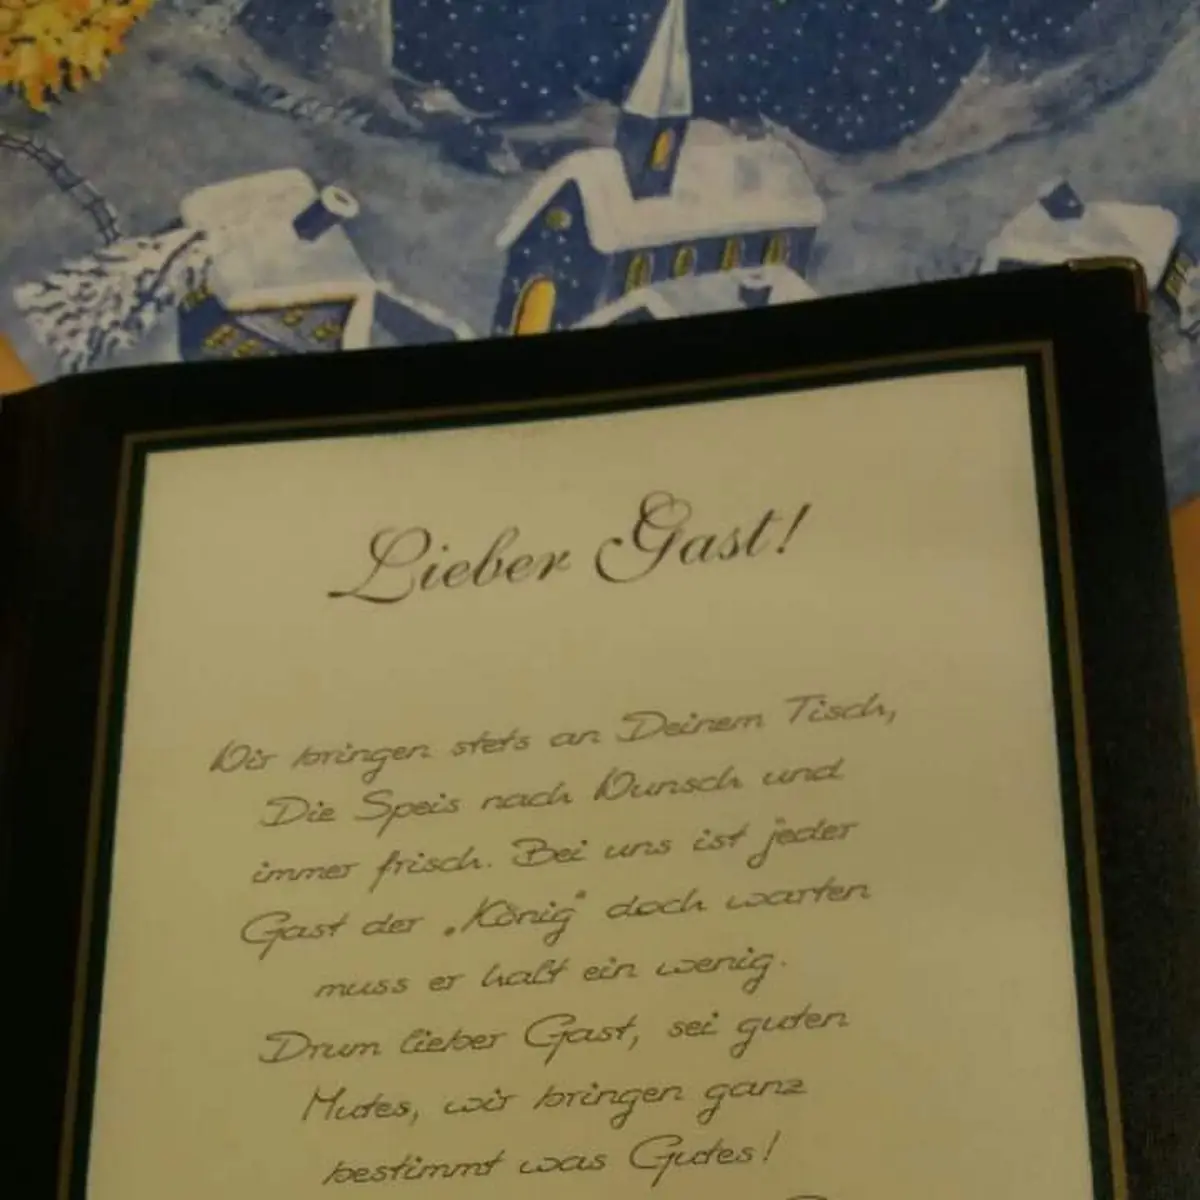 Lieber Gast!
Wir bringen stets an Deinem Tisch,
Die Speis nach Wunsch und
immer frisch. Bei uns ist jeder
Gast der „König" doch warten
muss er halt ein wenig.
Drum lieber Gast, sei guten
Mutes, wir bringen ganz
bestimmt was Gutes!